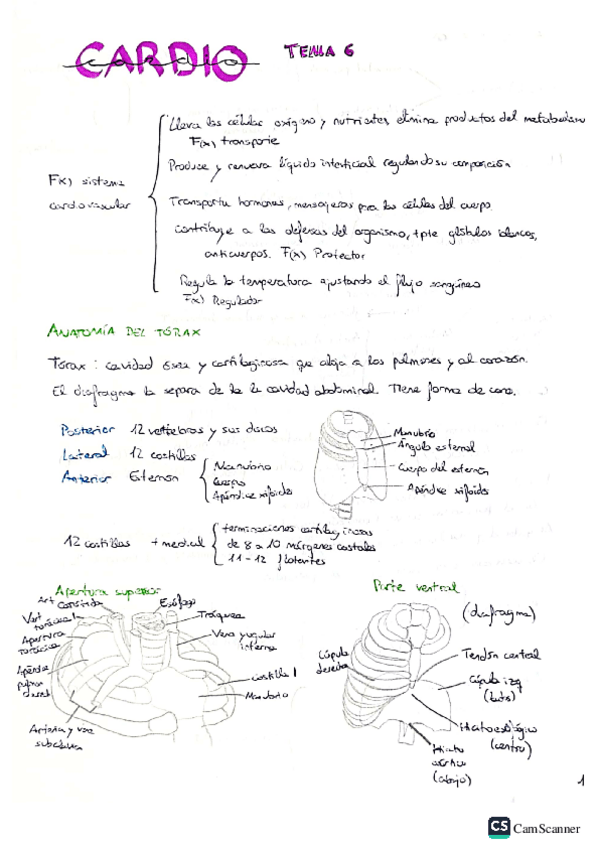 CARDIO TEMA 6
cardio
Lleva las células oxígeno y nutrientes, elimina productos del metabolismo
F(x) transporte
Produce y renueva líquido intersticial regulando su composición
F(x) sistema
cardiovascular
Transporta hormonas, mensajeros para las células del cuerpo.
contribuye a las defensas del organismo, tpte glóbulos blancos,
anticuerpos. F(x) Protector
Regula la temperatura ajustando el flujo sanguíneo
F(x) Regulador
ANATOMÍA DEL TÓRAX
Tórax: cavidad ósea y cartilaginosa que aloja a los pulmones y al corazón.
El diafragma la separa de la cavidad abdominal. Tiene forma de cono.
Posterior 12 vértebras y sus discos
Lateral 12 costillas
Anterior Esternón
Manubrio
Cuerpo
Apéndice xifoides
Manubrio
Ángulo esternal
Cuerpo del esternón
Apéndice xifoides
12 costillas + medial
terminaciones cartilaginosas
de 8 a 10 márgenes costales
11-12 flotantes
Apertura superior
Art carótida
Esófago
Vert torácica 1
Tráquea
Apertura torácica
Vena yugular interna
costilla 1
Manubrio
Arteria y vena subclavia
Parte ventral
(diafragma)
Cúpula derecha
Tendón central
Cúpula izq
Hiato esofágico
(centro)
Hiato
(abajo)
1
CS CamScanner